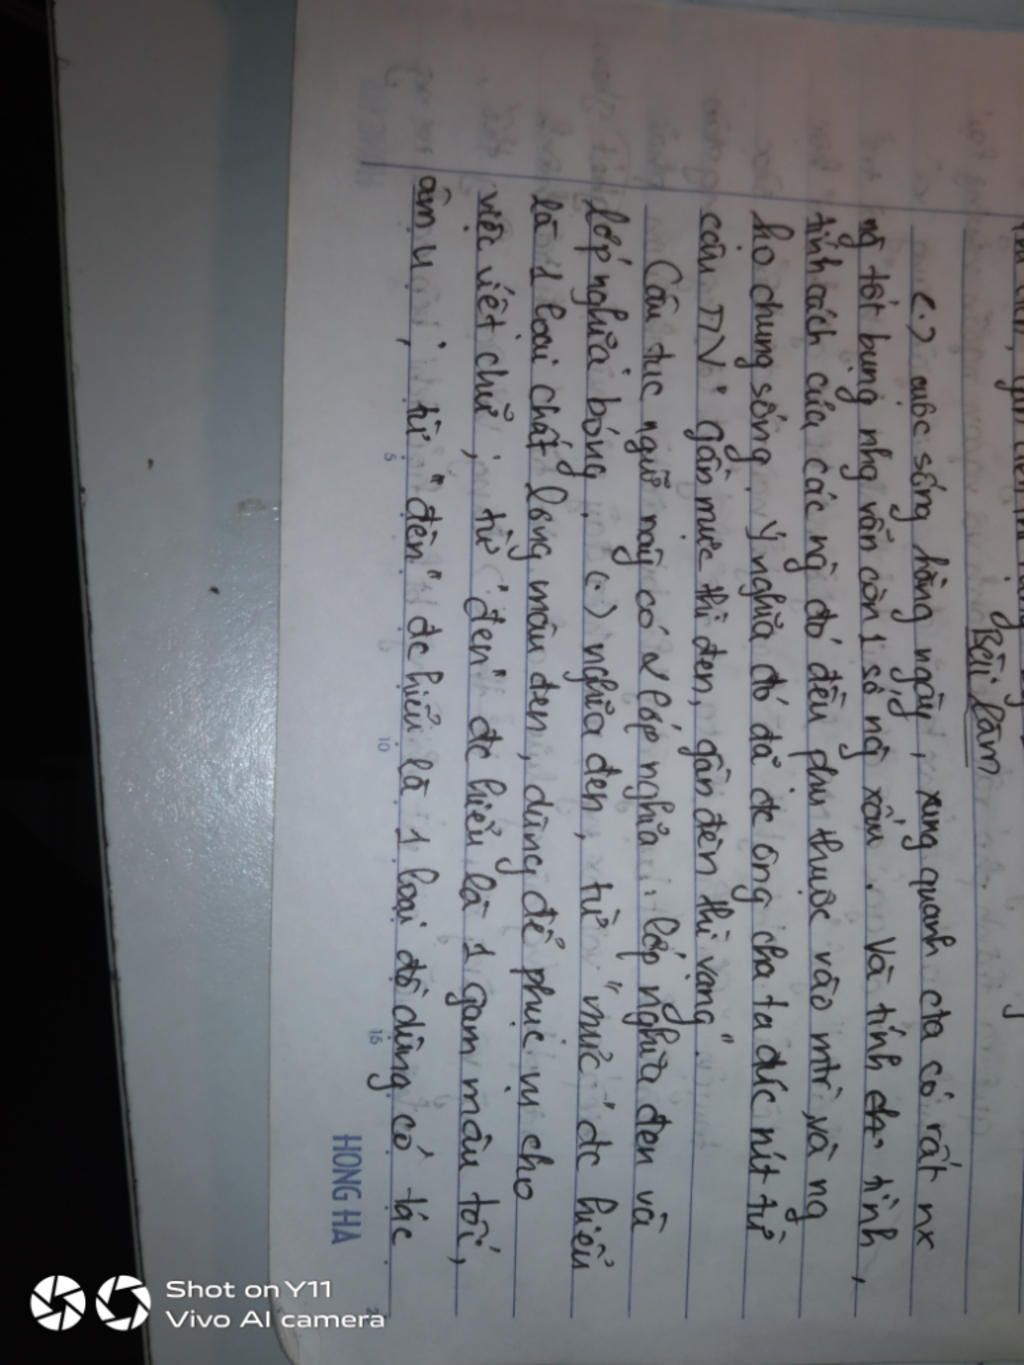 Bài làm
(.) cuộc sống hằng ngày, xung quanh cta có rất nx
ng tốt bụng nhg vẫn còn 1 số ng xấu. Và tính
tính cách của các ng đó đều phụ thuộc vào mtr, và ng
họ chung sống. Ý nghĩa đó đã đc ông cha ta đúc nít từ
câu TN "gần mực thì đen, gần đèn thì vang".
Câu tục ngữ này có 2 lớp nghĩa: lớp nghĩa đen và
lớp nghĩa bóng. (.) nghĩa đen, từ "mực" đc hiểu
là 1 loại chất lỏng màu đen, dùng để phục vụ cho
việc viết chữ; từ "đen" đc hiểu là 1 gam màu tối,
âm u; từ "đèn" đc hiểu là 1 loại đồ dùng có tác
5
10
15
HONG HA
Shot on Y11
Vivo AI camera